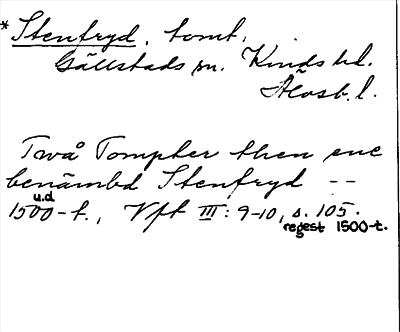 * Stenfryd, tomt,
Gällstads sn. Kinds hd.
Älvsb. l.
Twå Tompter then ene
benämbd Stenfryd --
u.d
1500-t., Vft III: 9-10, s. 105.
regest 1500-t.